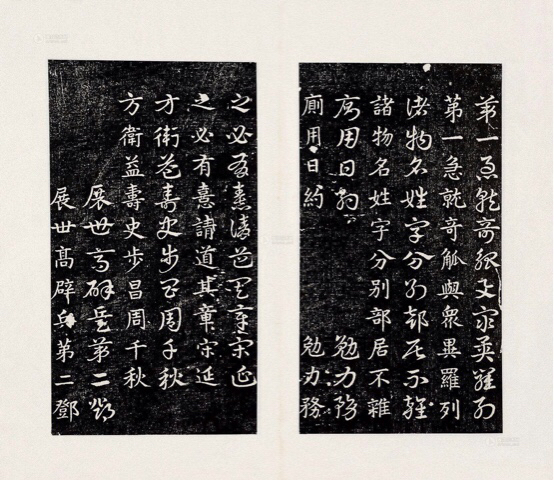 第一急就奇觚與衆異羅列
第一急就奇觚與衆異羅列
諸物名姓字分別部居不雜
諸物名姓字分別部居不雜
廁用日約 勉力務
廁用日約 勉力務
之必有憙請道其章宋延
之必有憙請道其章宋延
方衛益壽史步昌周千秋
方衛益壽史步昌周千秋
展世高辟兵第二鄧
展世髙辟兵第二鄧